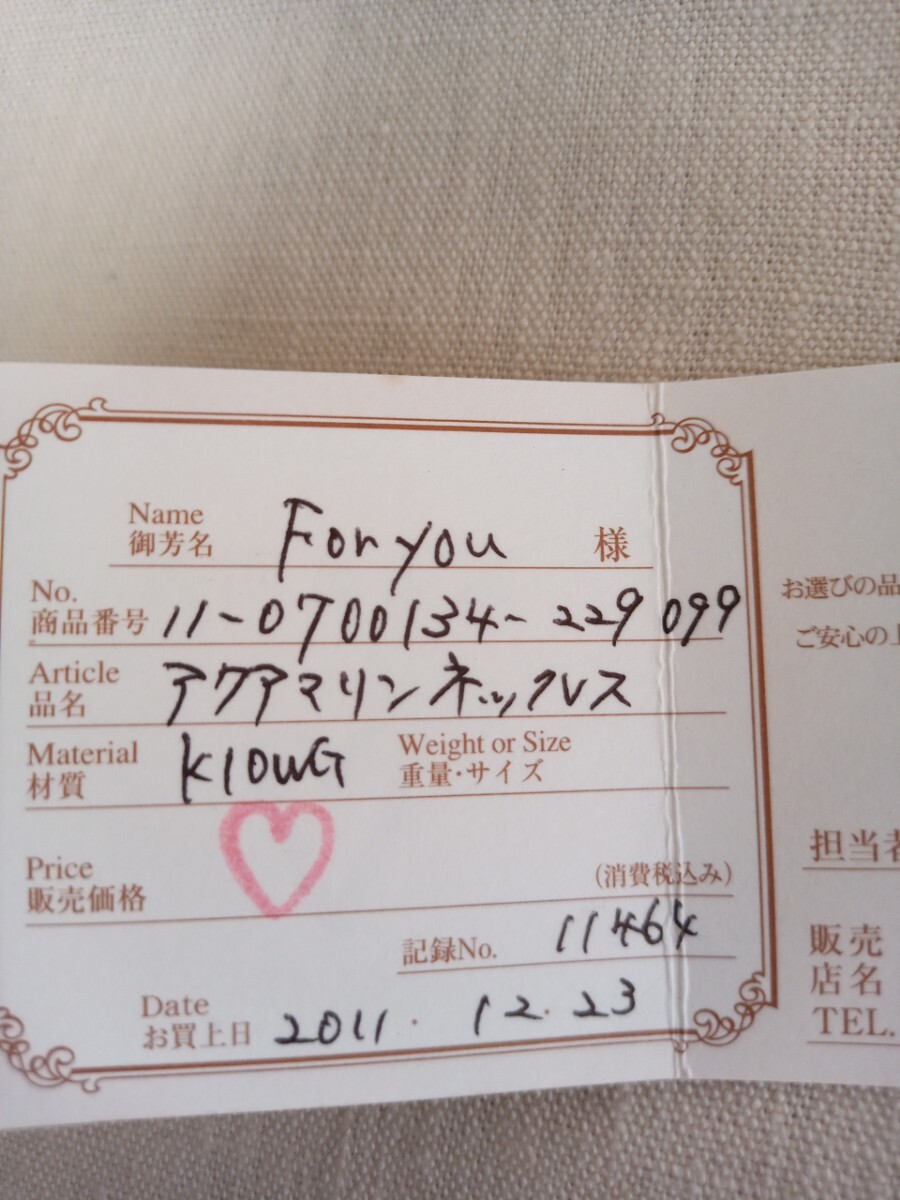 Name
御芳名 For you 様
No.
商品番号 11-0700134-229099
Article
品名 アクアマリンネックレス
Material Weight or Size
材質 K10WG 重量・サイズ
Price
販売価格 (消費税込み)
記録No. 11464
Date
お買上日 2011. 12. 23
お選びの品
ご安心の上
担当者
販売
店名
TEL.